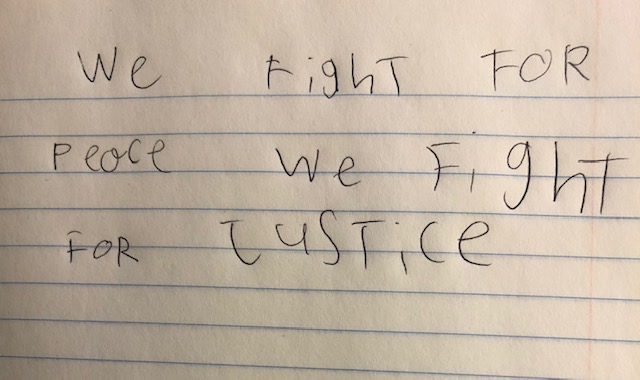 We Fight FOR
Peace We Fight
FOR JUSTice